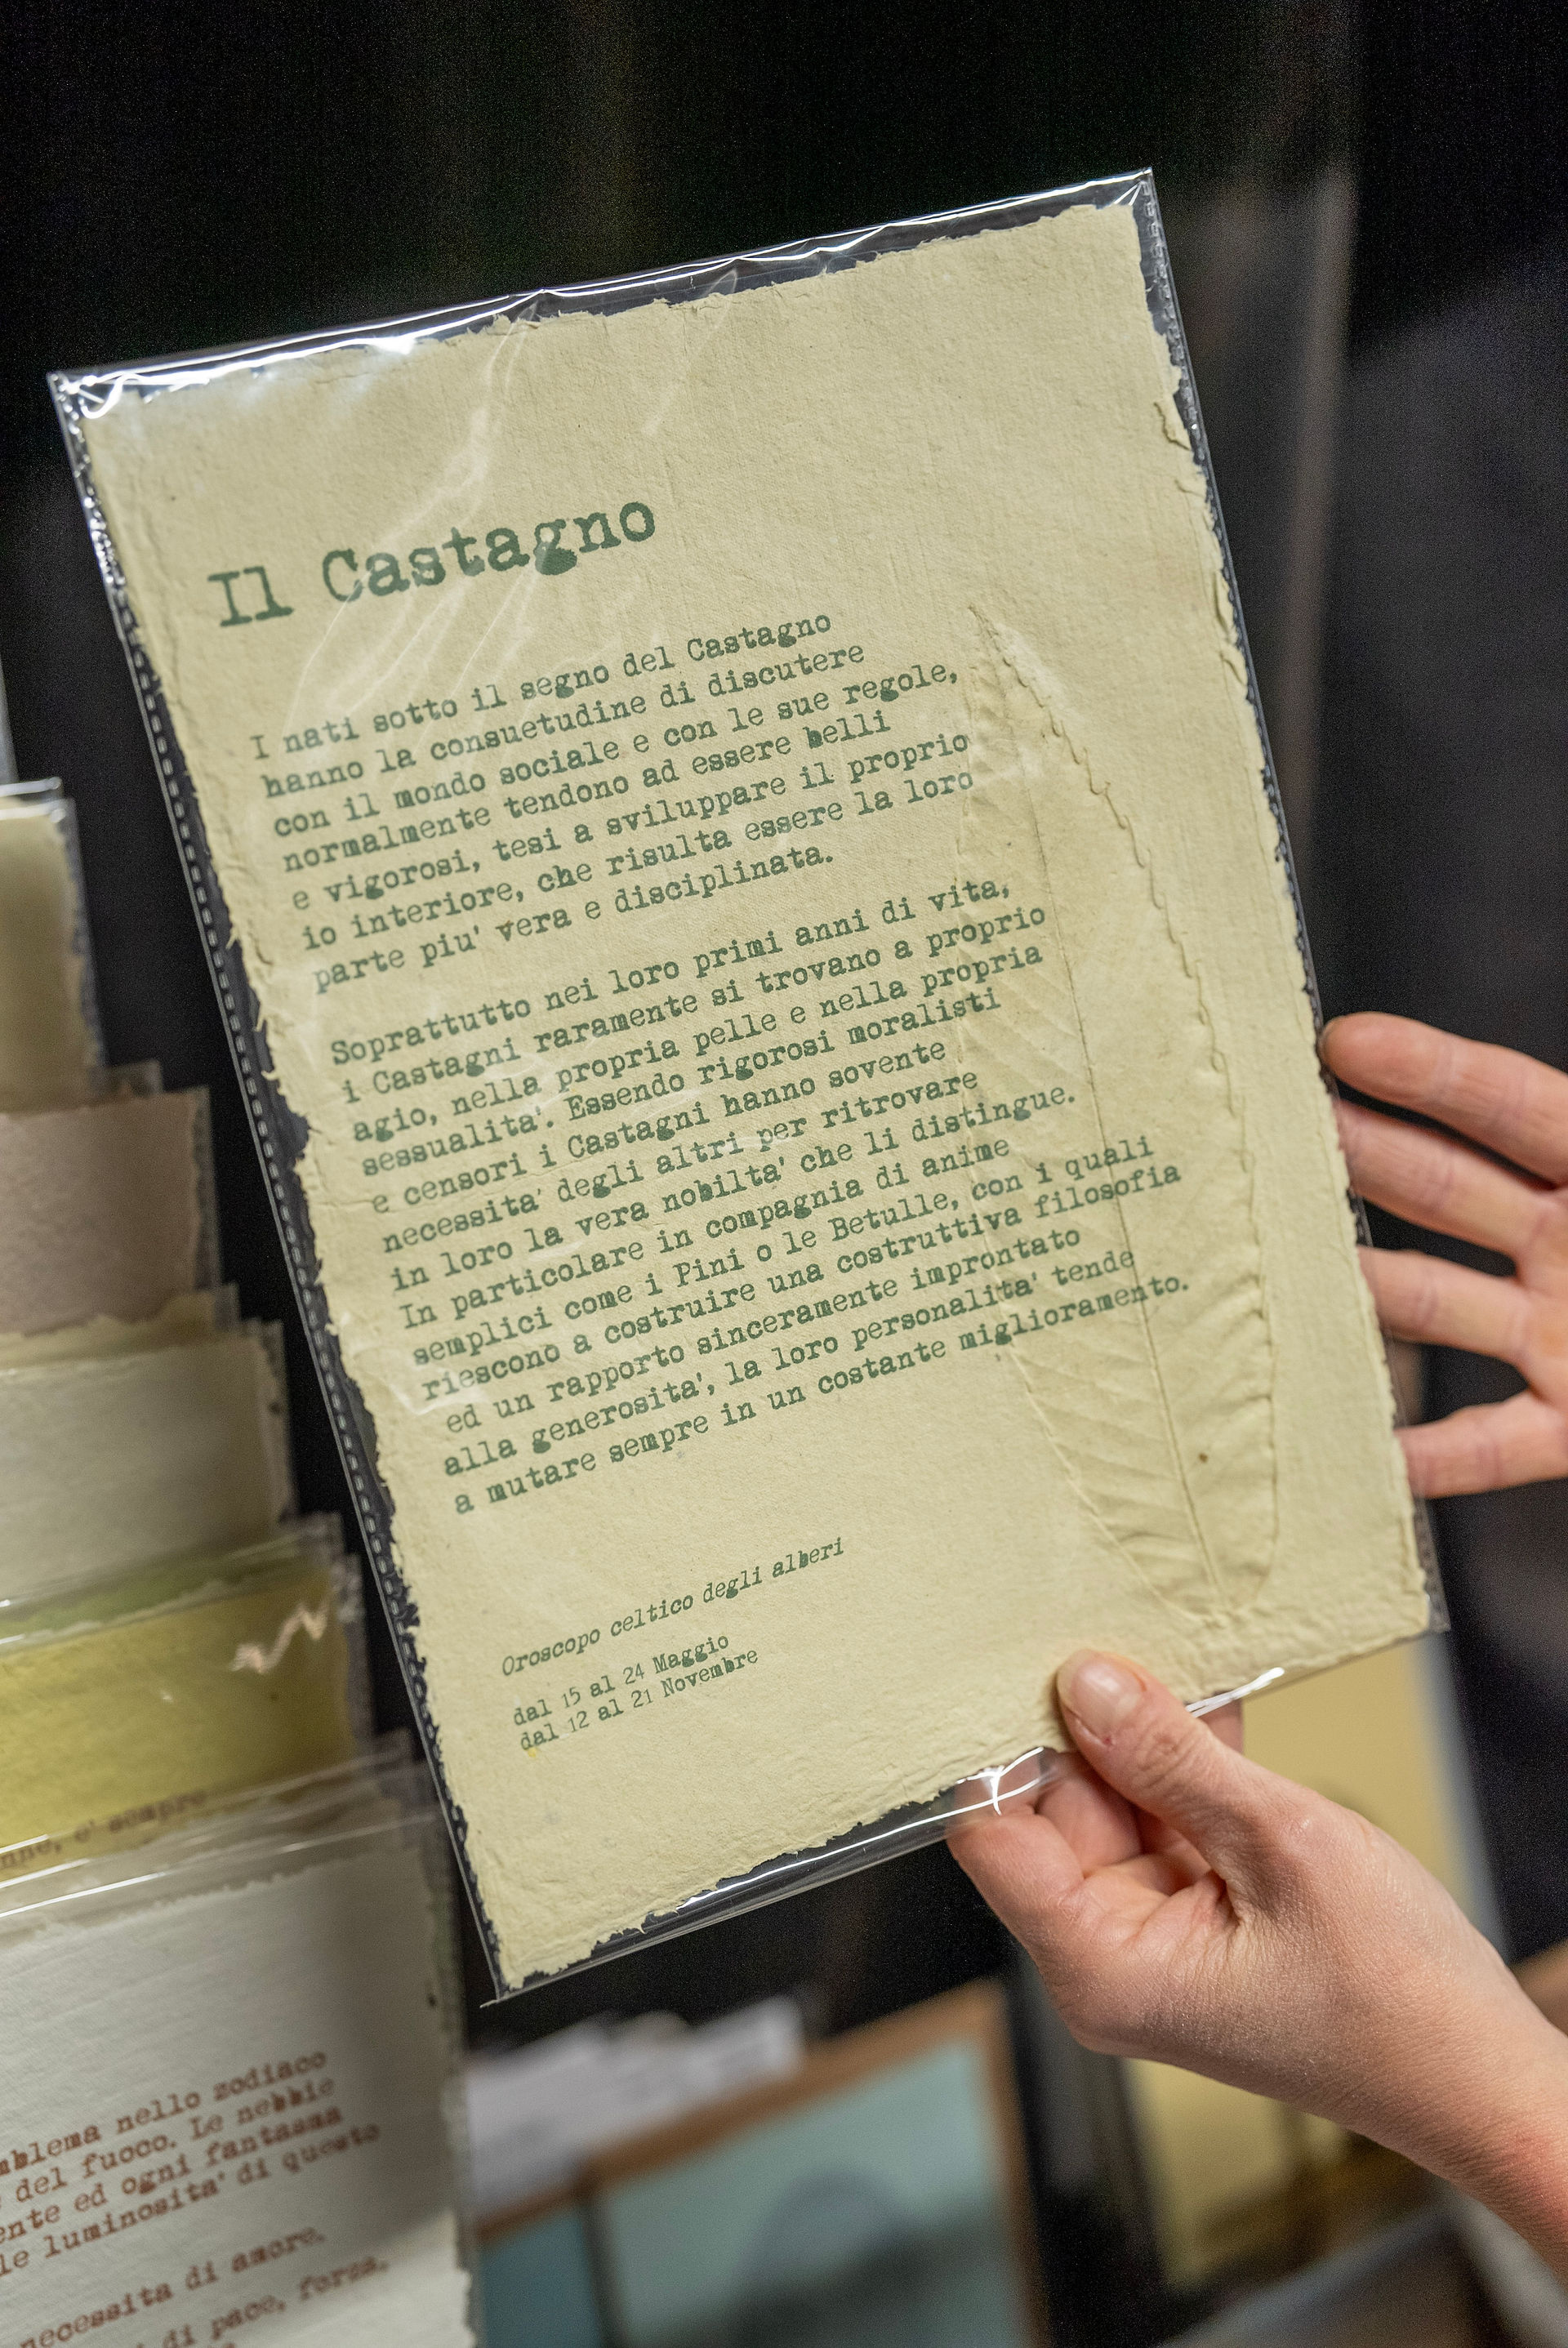 Il Castagno
I nati sotto il segno del Castagno
hanno la consuetudine di discutere
con il mondo sociale e con le sue regole,
normalmente tendono ad essere belli
e vigorosi, tesi a sviluppare il proprio
io interiore, che risulta essere la loro
parte piu' vera e disciplinata.
Soprattutto nei loro primi anni di vita,
i Castagni raramente si trovano a proprio
agio, nella propria pelle e nella propria
sessualita'. Essendo rigorosi moralisti
e censori i Castagni hanno sovente
necessita' degli altri per ritrovare
in loro la vera nobilta' che li distingue.
In particolare in compagnia di anime
semplici come i Pini o le Betulle, con i quali
riescono a costruire una costruttiva filosofia
ed un rapporto sinceramente improntato
alla generosita', la loro personalita' tende
a mutare sempre in un costante miglioramento.
Oroscopo celtico degli alberi
dal 15 al 24 Maggio
dal 12 al 21 Novembre
e' sempre
nello zodiaco
del fuoco. Le nebbie
ed ogni fantasma
luminosita' di questo
necessita di amore.
di pace, forza.